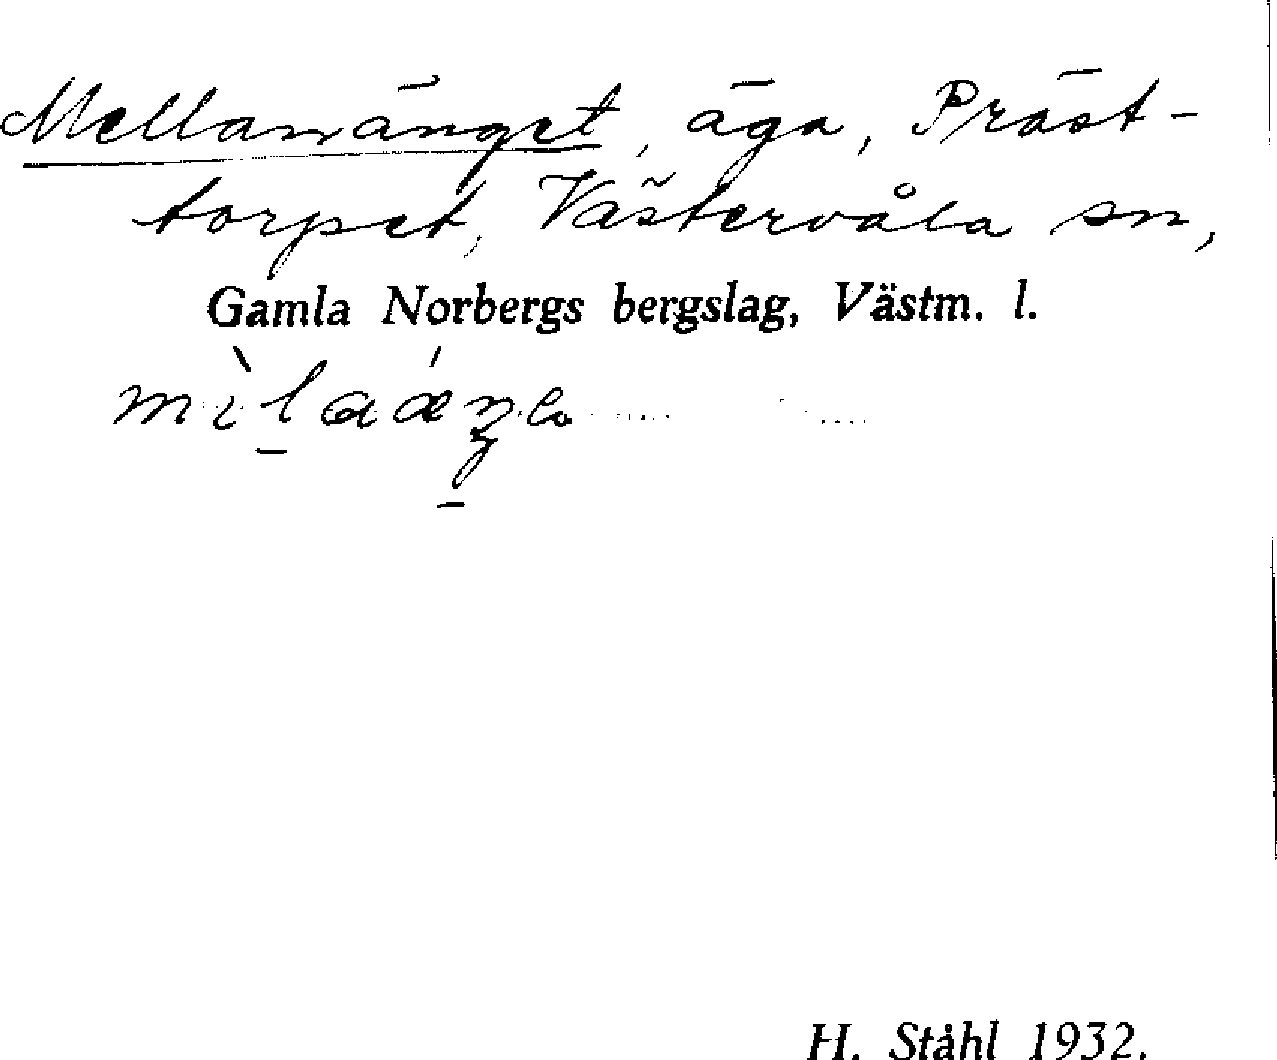 Mellanänget, äga, Präst-
torpet, Västervåla sn,
Gamla Norbergs bergslag, Västm. l.
H. Ståhl 1932.